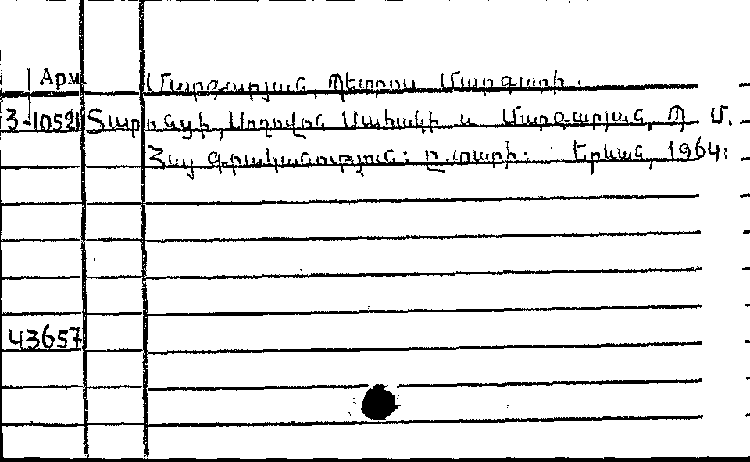 Арм
Մարգարյան, Պետրոս Մարգարի.
3-10521 Տարոնցի, Սողոմոն Մահակի և Մարգարյան, Պ. Մ.
Հայ գրականություն: տարի: Երևան, 1964:
43657